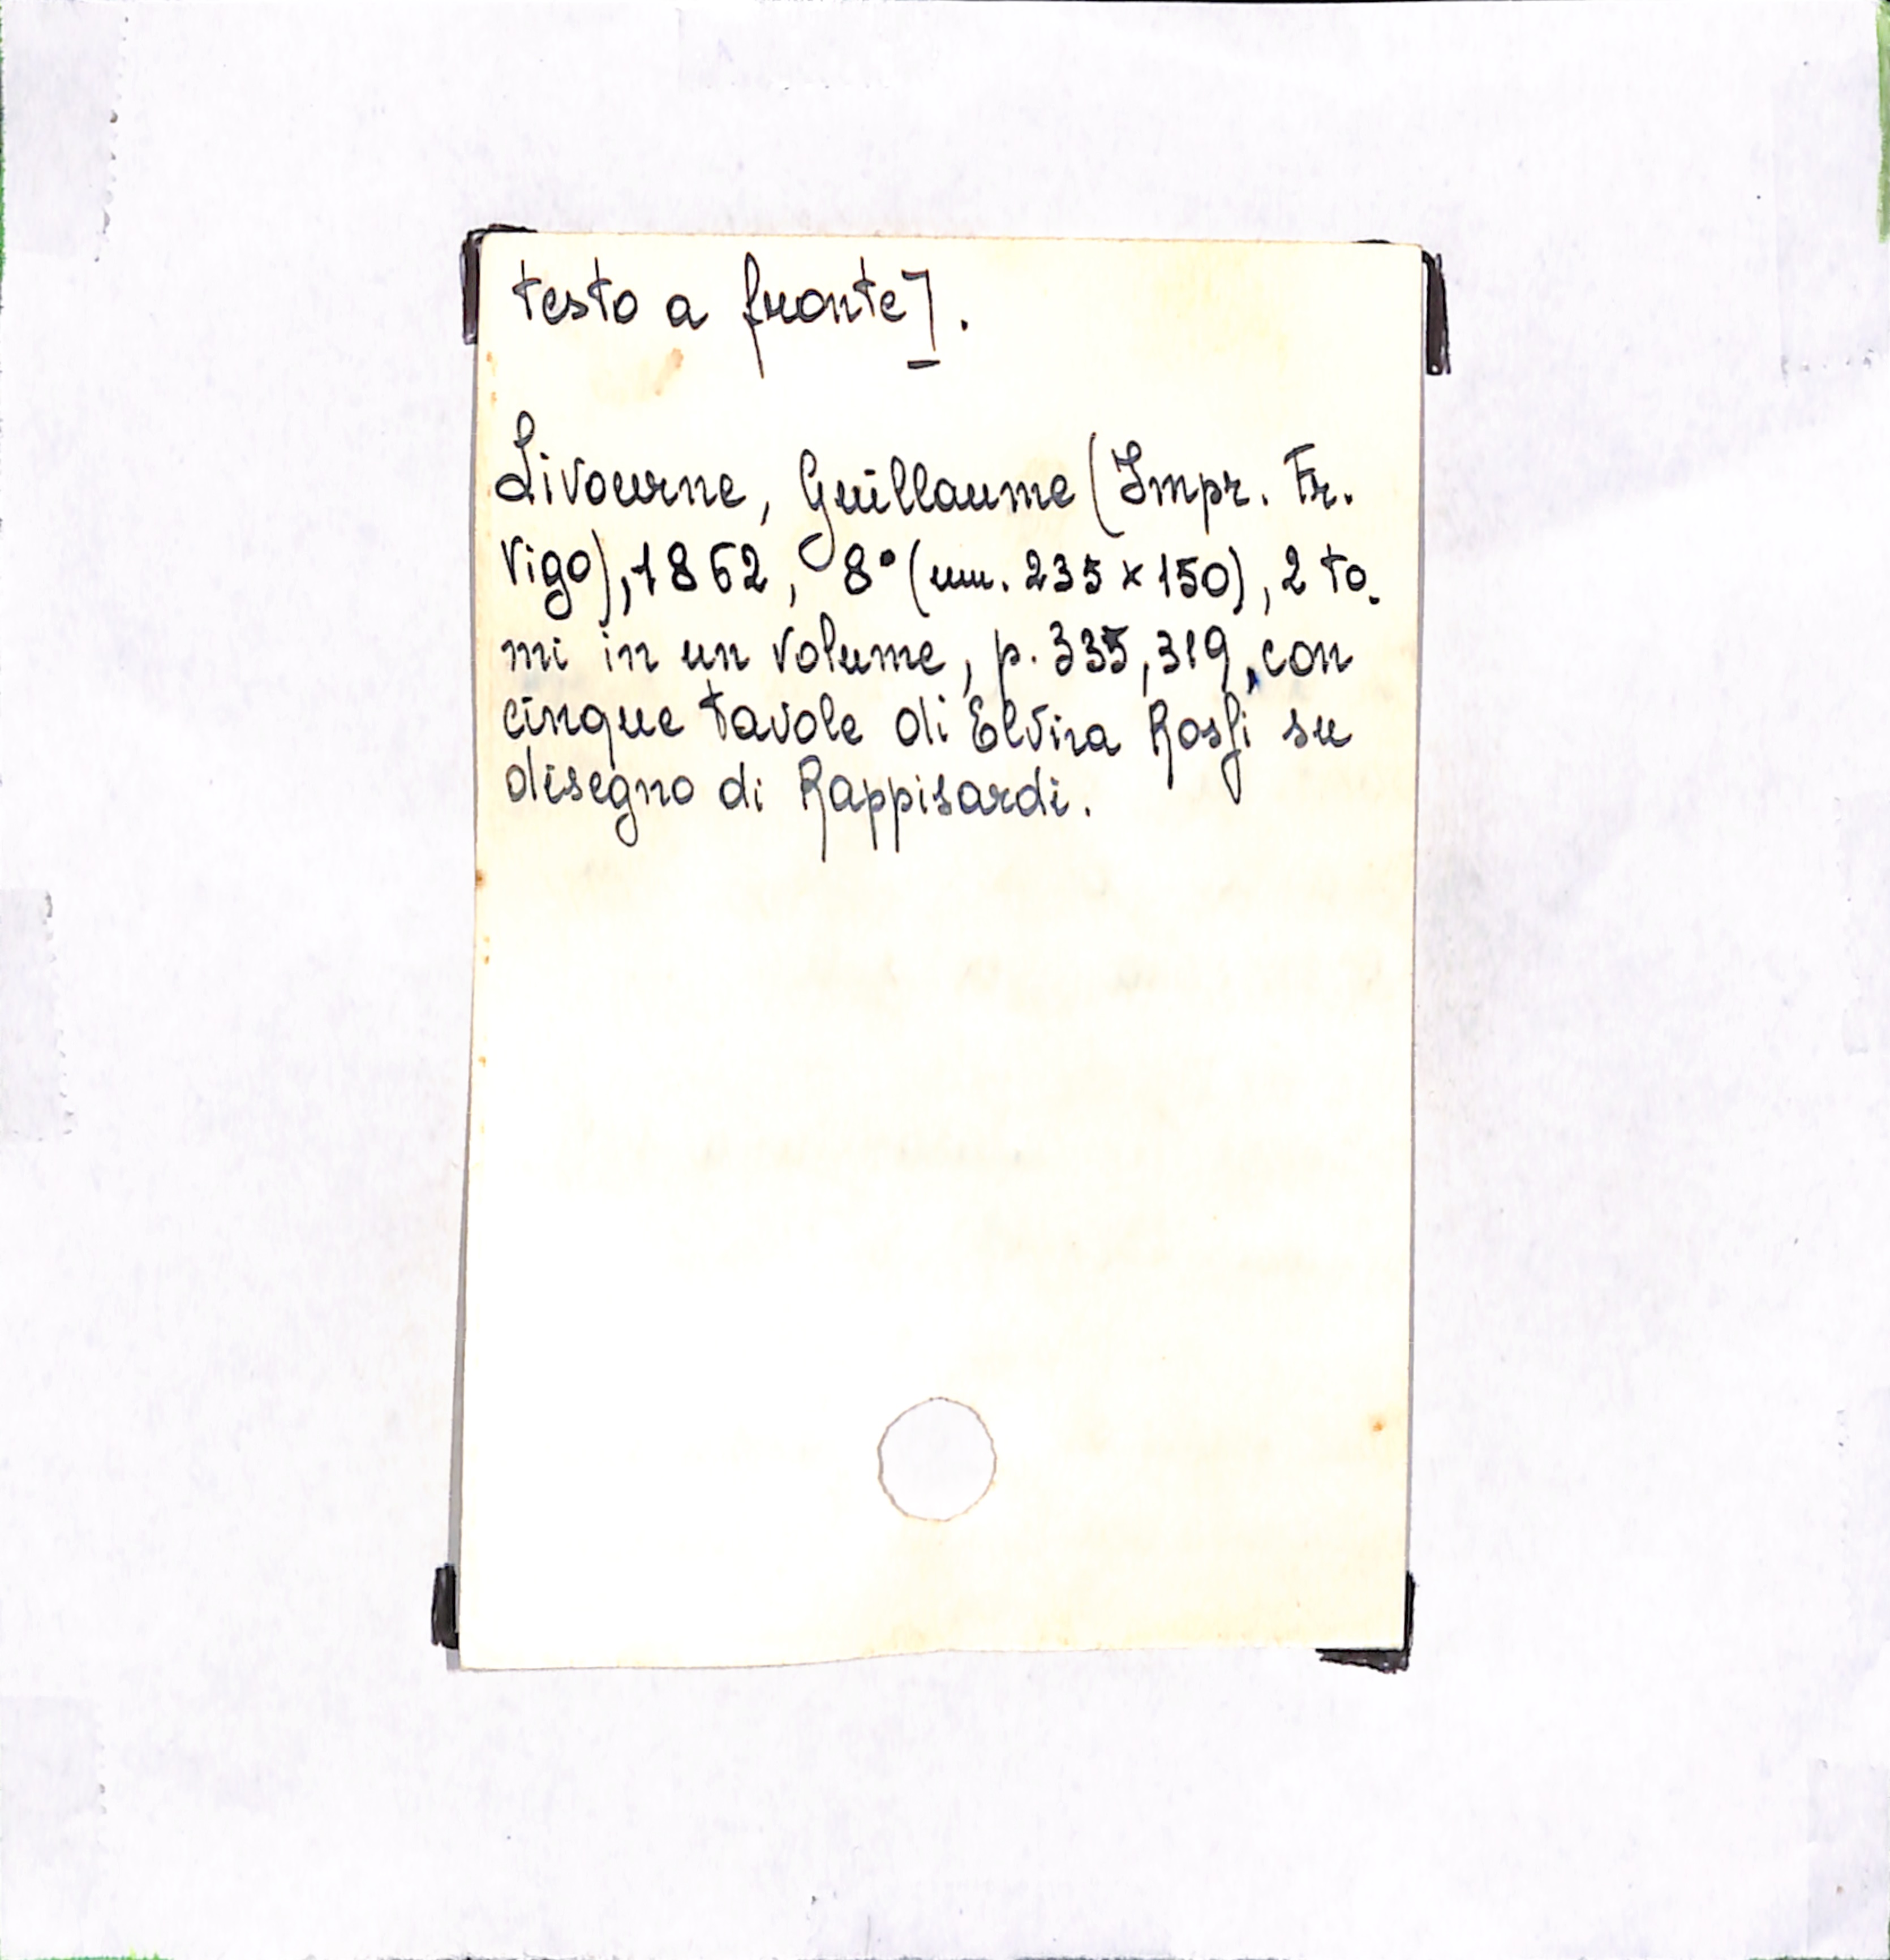 testo a fronte].
Livourne, Guillaume (Impr. Fr.
Vigo), 1862, 8° (mm. 235 x 150), 2 to-
mi in un volume, p. 335, 319, con
cinque tavole di Elvira Rossi su
disegno di Rappisardi.